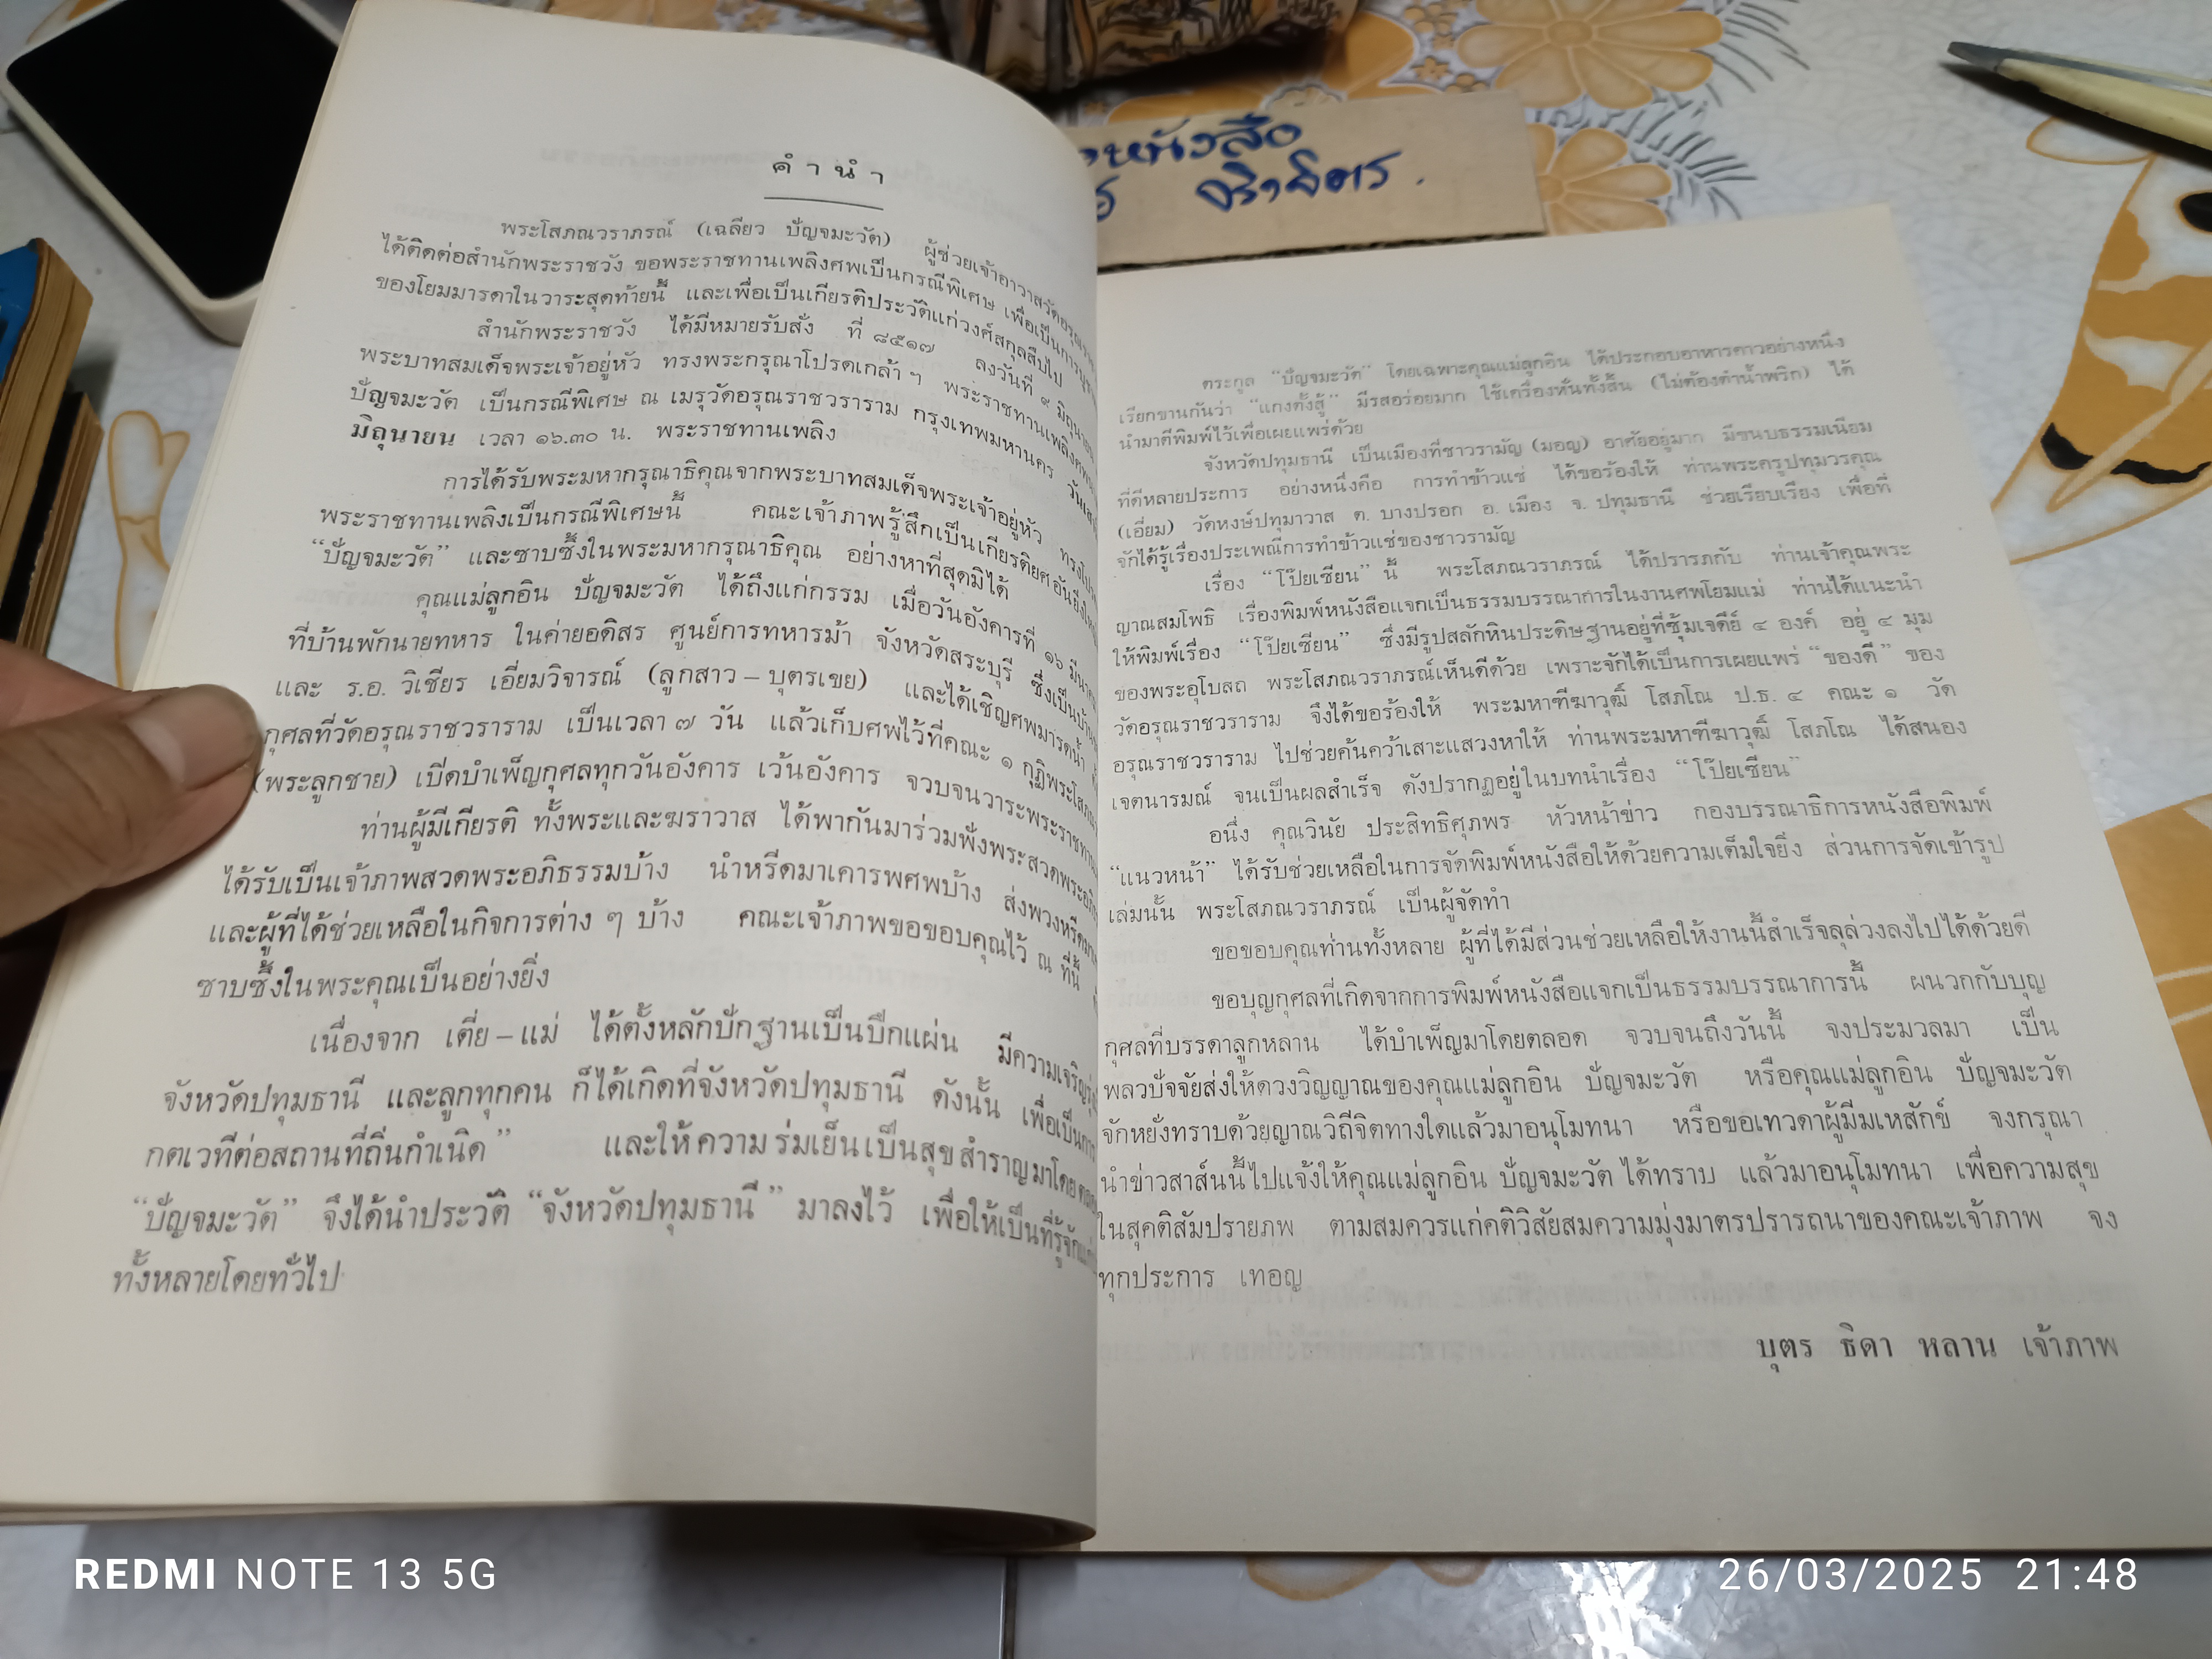 คำนำ
พระโสภณวราภรณ์ (เฉลียว ปัญจมะวัต) ผู้ช่วยเจ้าอาวาสวัดอรุณ
ได้ติดต่อสำนักพระราชวัง ขอพระราชทานเพลิงศพเป็นกรณีพิเศษ เพื่อเป็นการ
ของโยมมารดาในวาระสุดท้ายนี้ และเพื่อเป็นเกียรติประวัติแก่วงศ์สกุลสืบไป
สำนักพระราชวัง ได้มีหมายรับสั่ง ที่ ๘๕๑๗ ลงวันที่ ๙ มิถุนายน
พระบาทสมเด็จพระเจ้าอยู่หัว ทรงพระกรุณาโปรดเกล้า ฯ พระราชทานเพลิงศพ
ปัญจมะวัต เป็นกรณีพิเศษ ณ เมรุวัดอรุณราชวราราม กรุงเทพมหานคร
มิถุนายน เวลา ๑๖.๓๐ น. พระราชทานเพลิง
การได้รับพระมหากรุณาธิคุณจากพระบาทสมเด็จพระเจ้าอยู่หัว
พระราชทานเพลิงเป็นกรณีพิเศษนี้ คณะเจ้าภาพรู้สึกเป็นเกียรติยศอันยิ่งใหญ่
“ปัญจมะวัต” และซาบซึ้งในพระมหากรุณาธิคุณ อย่างหาที่สุดมิได้
คุณแม่ลูกอิน ปัญจมะวัต ได้ถึงแก่กรรม เมื่อวันอังคารที่ ๑๖ มีนาคม
ที่บ้านพักนายทหาร ในค่ายอดิสร ศูนย์การทหารม้า จังหวัดสระบุรี ซึ่งเป็นบ้าน
และ ร.อ. วิเชียร เอี่ยมวิจารณ์ (ลูกสาว – บุตรเขย) และได้เชิญศพมารดน้ำ
กุศลที่วัดอรุณราชวราราม เป็นเวลา ๗ วัน แล้วเก็บศพไว้ที่คณะ ๑ กุฏิพระโสภณ
(พระลูกชาย) เปิดบำเพ็ญกุศลทุกวันอังคาร เว้นอังคาร จวบจนวาระพระราชทาน
ท่านผู้มีเกียรติ ทั้งพระและฆราวาส ได้พากันมาร่วมฟังพระสวดพระอภิ
ได้รับเป็นเจ้าภาพสวดพระอภิธรรมบ้าง นำหรีดมาเคารพศพบ้าง ส่งพวงหรีดมา
และผู้ที่ได้ช่วยเหลือในกิจการต่าง ๆ บ้าง คณะเจ้าภาพขอขอบคุณไว้ ณ ที่นี้
ซาบซึ้งในพระคุณเป็นอย่างยิ่ง
เนื่องจาก เตี่ย – แม่ ได้ตั้งหลักปักฐานเป็นปึกแผ่น มีความเจริญ
จังหวัดปทุมธานี และลูกทุกคน ก็ได้เกิดที่จังหวัดปทุมธานี ดังนั้น เพื่อเป็นการ
กตเวทีต่อสถานที่ถิ่นกำเนิด” และให้ความร่มเย็นเป็นสุขสำราญมาโดย
“ปัญจมะวัต” จึงได้นำประวัติ “จังหวัดปทุมธานี” มาลงไว้ เพื่อให้เป็นที่รู้จัก
ทั้งหลายโดยทั่วไป
หนังสือ
ตระกูล “ปัญจมะวัต” โดยเฉพาะคุณแม่ลูกอิน ได้ประกอบอาหารคาวอย่างหนึ่ง
เรียกขานกันว่า “แกงตั้งสู้” มีรสอร่อยมาก ใช้เครื่องหั่นทั้งสิ้น (ไม่ต้องตำน้ำพริก) ได้
นำมาตีพิมพ์ไว้เพื่อเผยแพร่ด้วย
จังหวัดปทุมธานี เป็นเมืองที่ชาวรามัญ (มอญ) อาศัยอยู่มาก มีขนบธรรมเนียม
ที่ดีหลายประการ อย่างหนึ่งคือ การทำข้าวแช่ ได้ขอร้องให้ ท่านพระครูปทุมวรคุณ
(เอี่ยม) วัดหงษ์ปทุมาวาส ต. บางปรอก อ. เมือง จ. ปทุมธานี ช่วยเรียบเรียง เพื่อที่
จักได้รู้เรื่องประเพณีการทำข้าวแช่ของชาวรามัญ
เรื่อง “โป๊ยเซียน” นี้ พระโสภณวราภรณ์ ได้ปรารภกับ ท่านเจ้าคุณพระ
ญาณสมโพธิ เรื่องพิมพ์หนังสือแจกเป็นธรรมบรรณาการในงานศพโยมแม่ ท่านได้แนะนำ
ให้พิมพ์เรื่อง “โป๊ยเซียน” ซึ่งมีรูปสลักหินประดิษฐานอยู่ที่ซุ้มเจดีย์ ๔ องค์ อยู่ ๔ มุม
ของพระอุโบสถ พระโสภณวราภรณ์เห็นดีด้วย เพราะจักได้เป็นการเผยแพร่ “ของดี” ของ
วัดอรุณราชวราราม จึงได้ขอร้องให้ พระมหาทีฆาวุฒิ์ โสภโณ ป.ธ. ๔ คณะ ๑ วัด
อรุณราชวราราม ไปช่วยค้นคว้าเสาะแสวงหาให้ ท่านพระมหาทีฆาวุฒิ์ โสภโณ ได้สนอง
เจตนารมณ์ จนเป็นผลสำเร็จ ดังปรากฏอยู่ในบทนำเรื่อง “โป๊ยเซียน”
อนึ่ง คุณวินัย ประสิทธิศุภพร หัวหน้าข่าว กองบรรณาธิการหนังสือพิมพ์
“แนวหน้า” ได้รับช่วยเหลือในการจัดพิมพ์หนังสือให้ด้วยความเต็มใจยิ่ง ส่วนการจัดเข้ารูป
เล่มนั้น พระโสภณวราภรณ์ เป็นผู้จัดทำ
ขอขอบคุณท่านทั้งหลาย ผู้ที่ได้มีส่วนช่วยเหลือให้งานนี้สำเร็จลุล่วงลงไปได้ด้วยดี
ขอบุญกุศลที่เกิดจากการพิมพ์หนังสือแจกเป็นธรรมบรรณาการนี้ ผนวกกับบุญ
กุศลที่บรรดาลูกหลาน ได้บำเพ็ญมาโดยตลอด จวบจนถึงวันนี้ จงประมวลมา เป็น
พลวปัจจัยส่งให้ดวงวิญญาณของคุณแม่ลูกอิน ปัญจมะวัต หรือคุณแม่ลูกอิน ปัญจมะวัต
จักหยั่งทราบด้วยญาณวิถีจิตทางใดแล้วมาอนุโมทนา หรือขอเทวดาผู้มีมเหสักข์ จงกรุณา
นำข่าวสาส์นนี้ไปแจ้งให้คุณแม่ลูกอิน ปัญจมะวัต ได้ทราบ แล้วมาอนุโมทนา เพื่อความสุข
ในสุคติสัมปรายภพ ตามสมควรแก่คติวิสัยสมความมุ่งมาตรปรารถนาของคณะเจ้าภาพ จง
ทุกประการ เทอญ
บุตร ธิดา หลาน เจ้าภาพ
REDMI NOTE 13 5G
26/03/2025 21:48